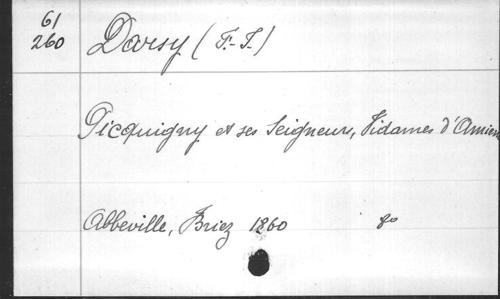 61
260
Darsy (F.-I.)
Picquigny et ses Seigneurs, Vidames d'Amiens
Abbeville, Briez 1860 8o